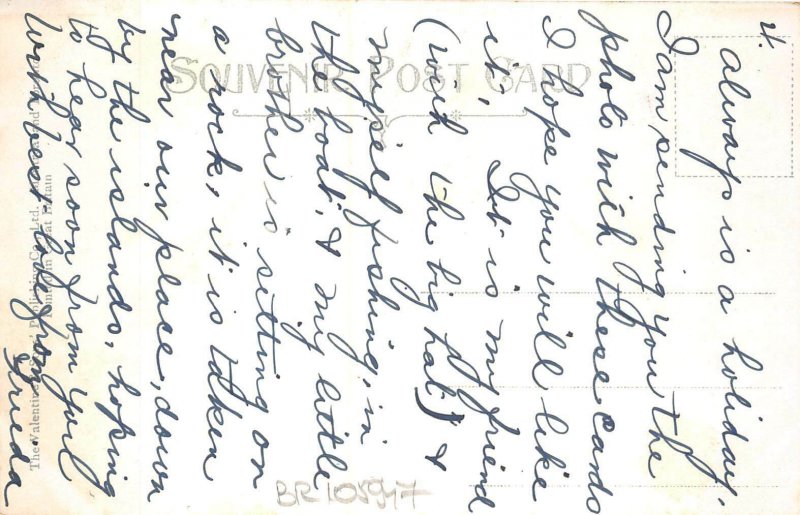 4.
always is a holiday.
I am sending you the
photo with these cards
I hope you will like
it, It is my friend
(with the big hat) &
myself fishing, in
the boat, & my little
brother is sitting on
a rock, it is taken
near our place, down
by the islands, hoping
to hear soon from you
With best love from
Frieda
SOUVENIR POST CARD
BR 105947